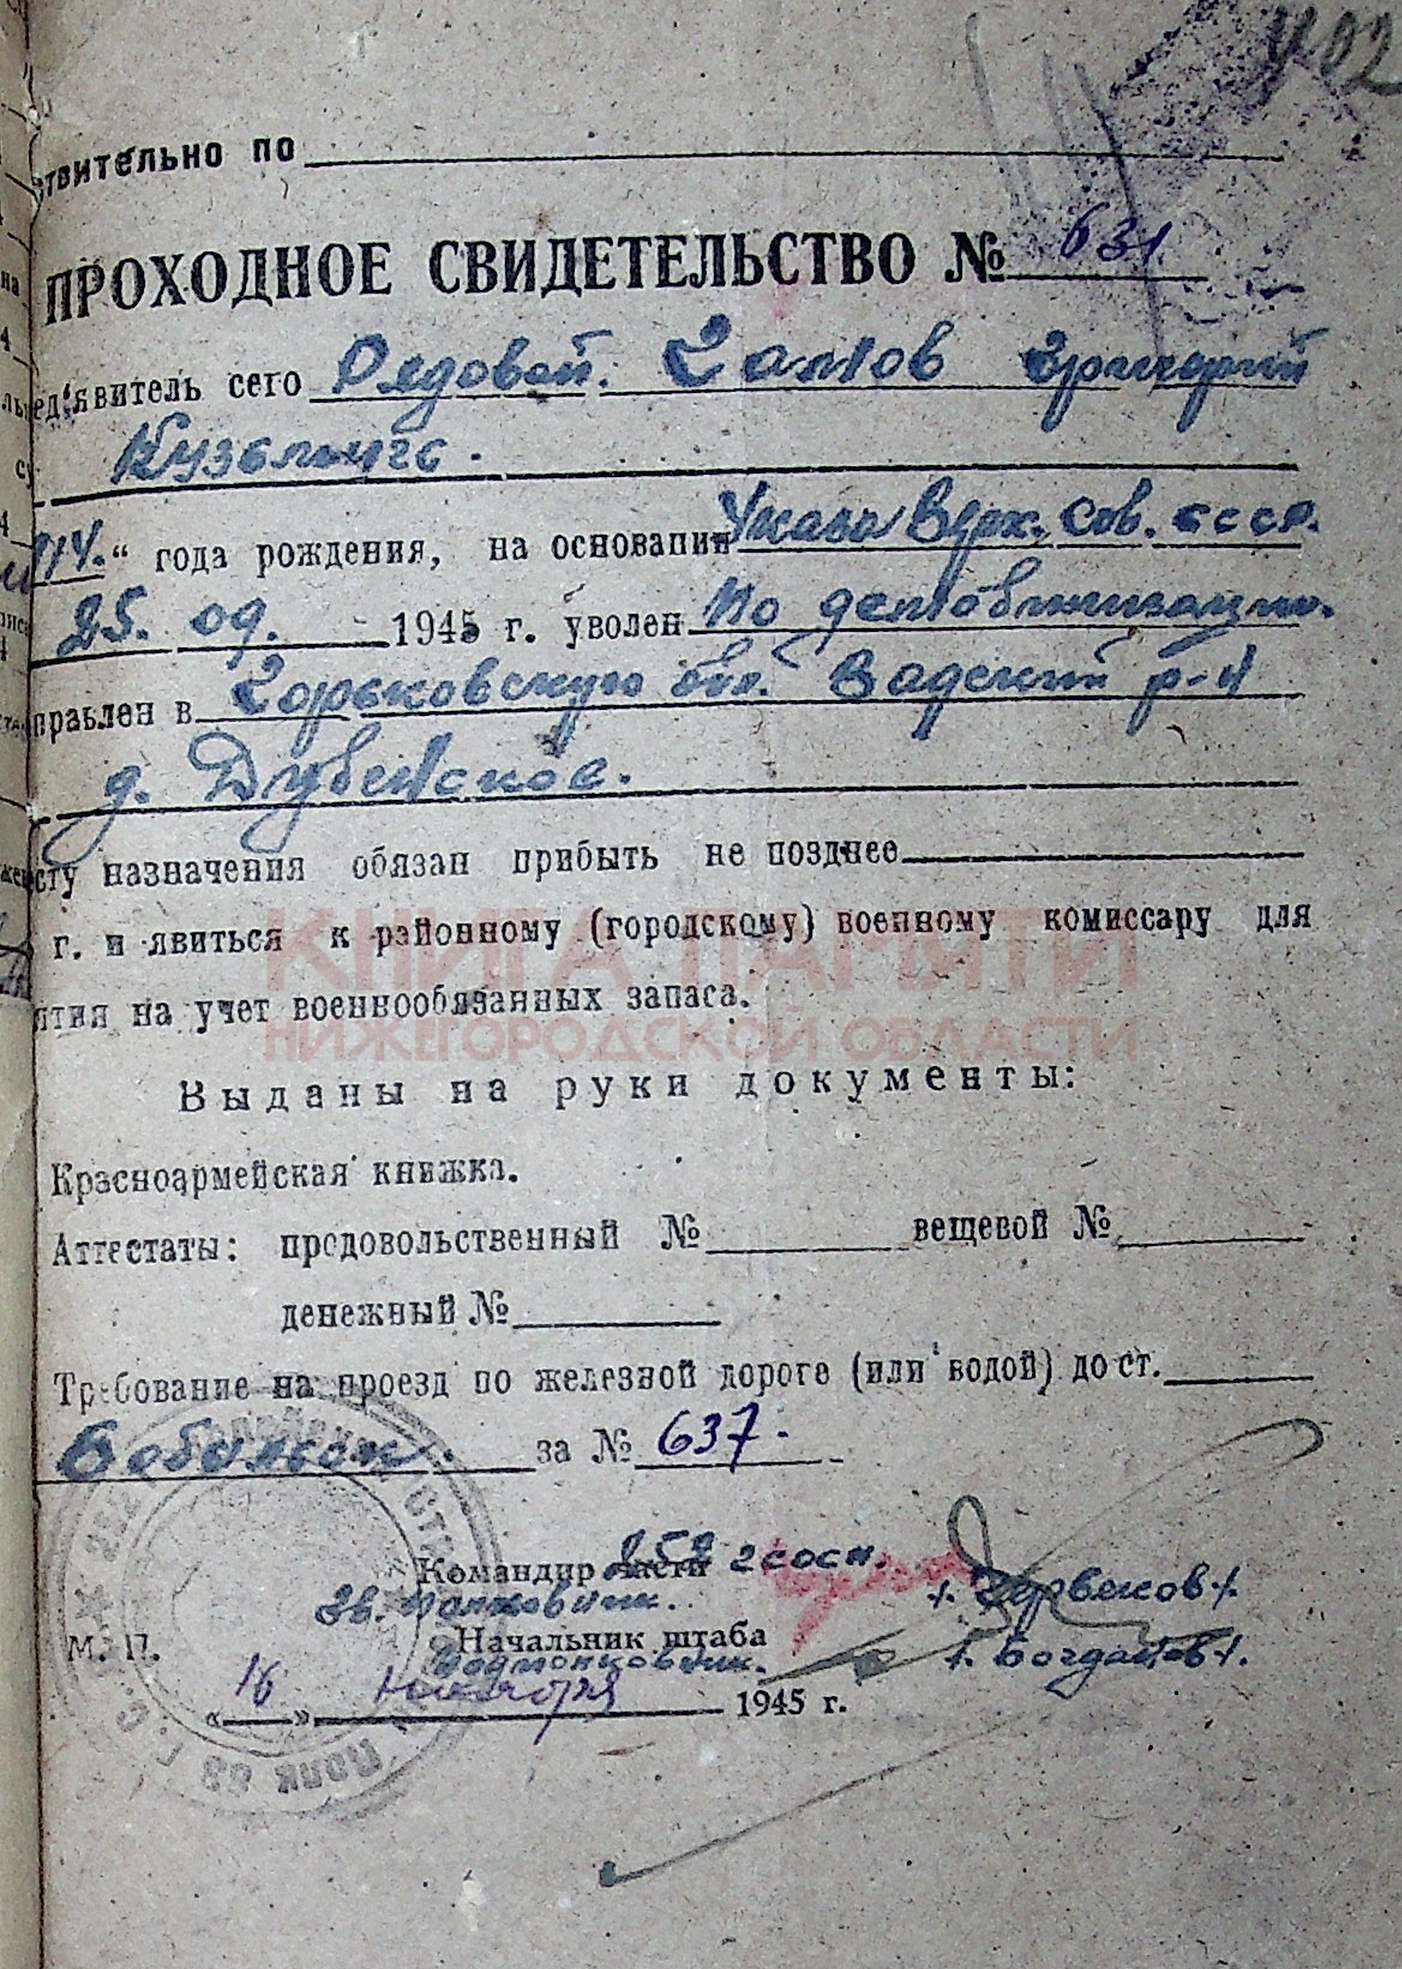 402
твительно по
ПРОХОДНОЕ СВИДЕТЕЛЬСТВО № 631
ед'явитель сего Рядовой. Галов Григорий
Кузьмичь.
914." года рождения, на основании Указа Верх. Сов. СССР.
25. 09. 1945 г. уволен по демобилизации.
правлен в Горьковскую обл. Вадский р-н
д. Дубенское.
сту назначения обязан прибыть не позднее
г. и явиться к районному (городскому) военному комиссару для
ятия на учет военнообязанных запаса.
КНИГА ПАМЯТИ
НИЖЕГОРОДСКОЙ ОБЛАСТИ
Выданы на руки документы:
Красноармейская книжка.
Аттестаты: продовольственный № вещевой №
денежный №
Требование на проезд по железной дороге (или водой) до ст.
за № 637.
Командир части
Гв. полковник.
Начальник штаба
подполковник. /. Богданов /.
М. П.
« 16 » ноября 1945 г.